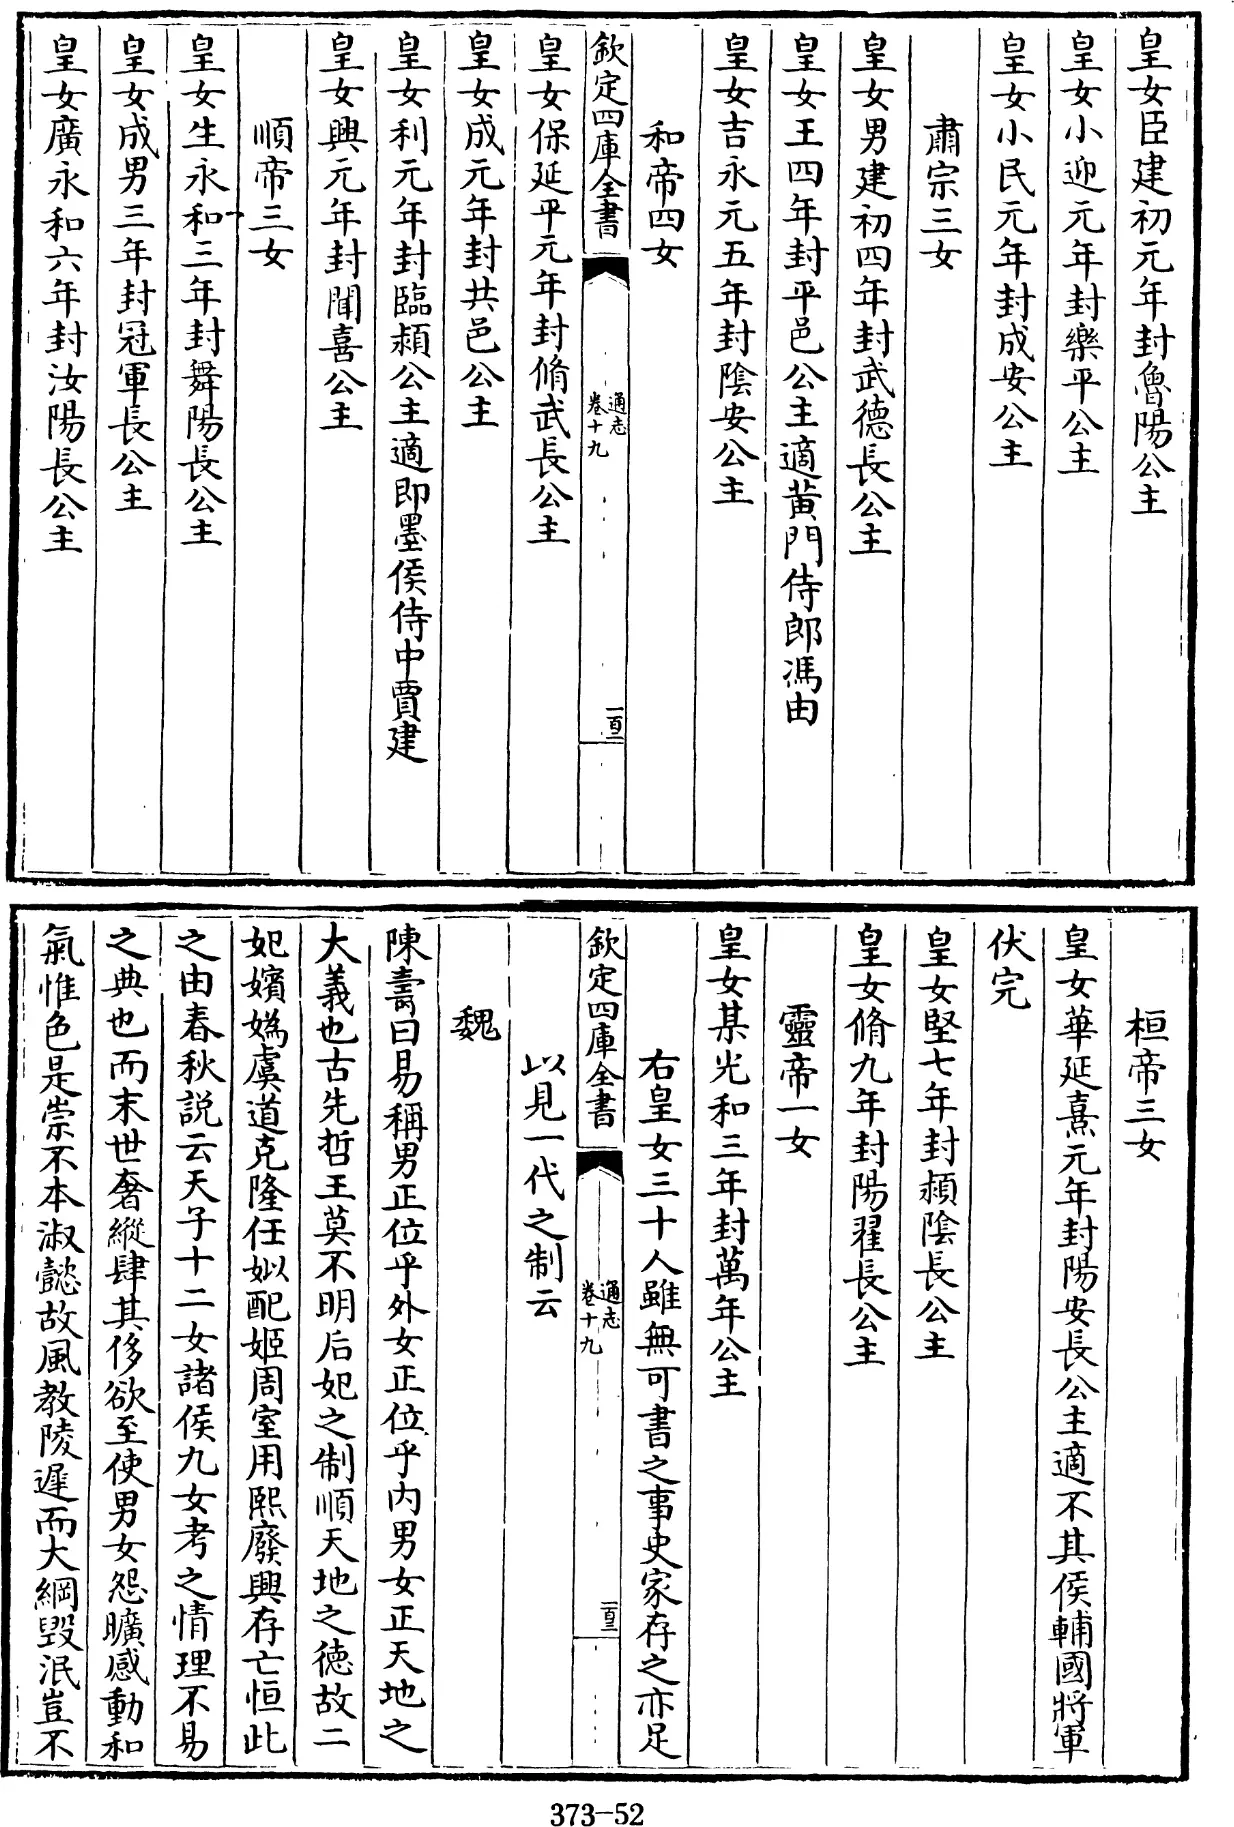 皇女臣建初元年封魯陽公主
皇女小迎元年封樂平公主
皇女小民元年封成安公主
肅宗三女
皇女男建初四年封武德長公主
皇女王四年封平邑公主適黃門侍郎馮由
皇女吉永元五年封陰安公主
和帝四女
欽定四庫全書
通志
卷十九
一百二
皇女保延平元年封脩武長公主
皇女成元年封共邑公主
皇女利元年封臨潁公主適即墨侯侍中賈建
皇女興元年封聞喜公主
順帝三女
皇女生永和三年封舞陽長公主
皇女成男三年封冠軍長公主
皇女廣永和六年封汝陽長公主
桓帝三女
皇女華延熹元年封陽安長公主適不其侯輔國將軍
伏完
皇女堅七年封潁陰長公主
皇女脩九年封陽翟長公主
靈帝一女
皇女某光和三年封萬年公主
右皇女三十人雖無可書之事史家存之亦足
欽定四庫全書
通志
卷十九
一百三
以見一代之制云
魏
陳壽曰易稱男正位乎外女正位乎内男女正天地之
大義也古先哲王莫不明后妃之制順天地之德故二
妃嬪媯虞道克隆任姒配姬周室用熙廢興存亡恒此
之由春秋説云天子十二女諸侯九女考之情理不易
之典也而末世奢縱肆其侈欲至使男女怨曠感動和
氣惟色是崇不本淑懿故風教陵遲而大綱毀泯豈不
373-52